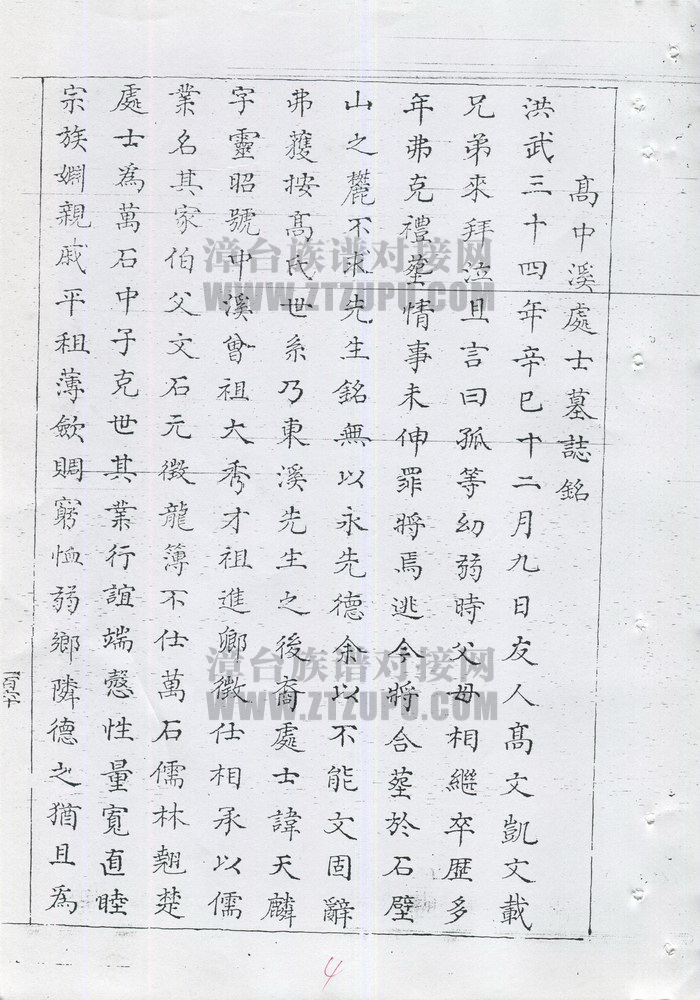 高中溪處士墓誌銘
洪武三十四年辛巳十二月九日友人髙文凱文載
兄弟來拜泣且言曰孤等幼弱時父母相繼卒歷多
年弗克禮塟情事未伸罪將焉逃今將合塟於石壁
山之麓不求先生銘無以永先德余以不能文固辭
弗獲按髙氏世系乃東溪先生之後裔處士諱天麟
字靈昭號中溪曾祖大秀才祖進卿徵仕相承以儒
業名其家伯父文石元徵龍簿不仕萬石儒林翹楚
處士為萬石中子克世其業行誼端慤性量寬直睦
宗族婣親戚平租薄歛賙窮恤弱鄉隣德之猶且為
漳台族谱对接网
WWW.ZTZUPU.COM
漳台族谱对接网
WWW.ZTZUPU.COM
4